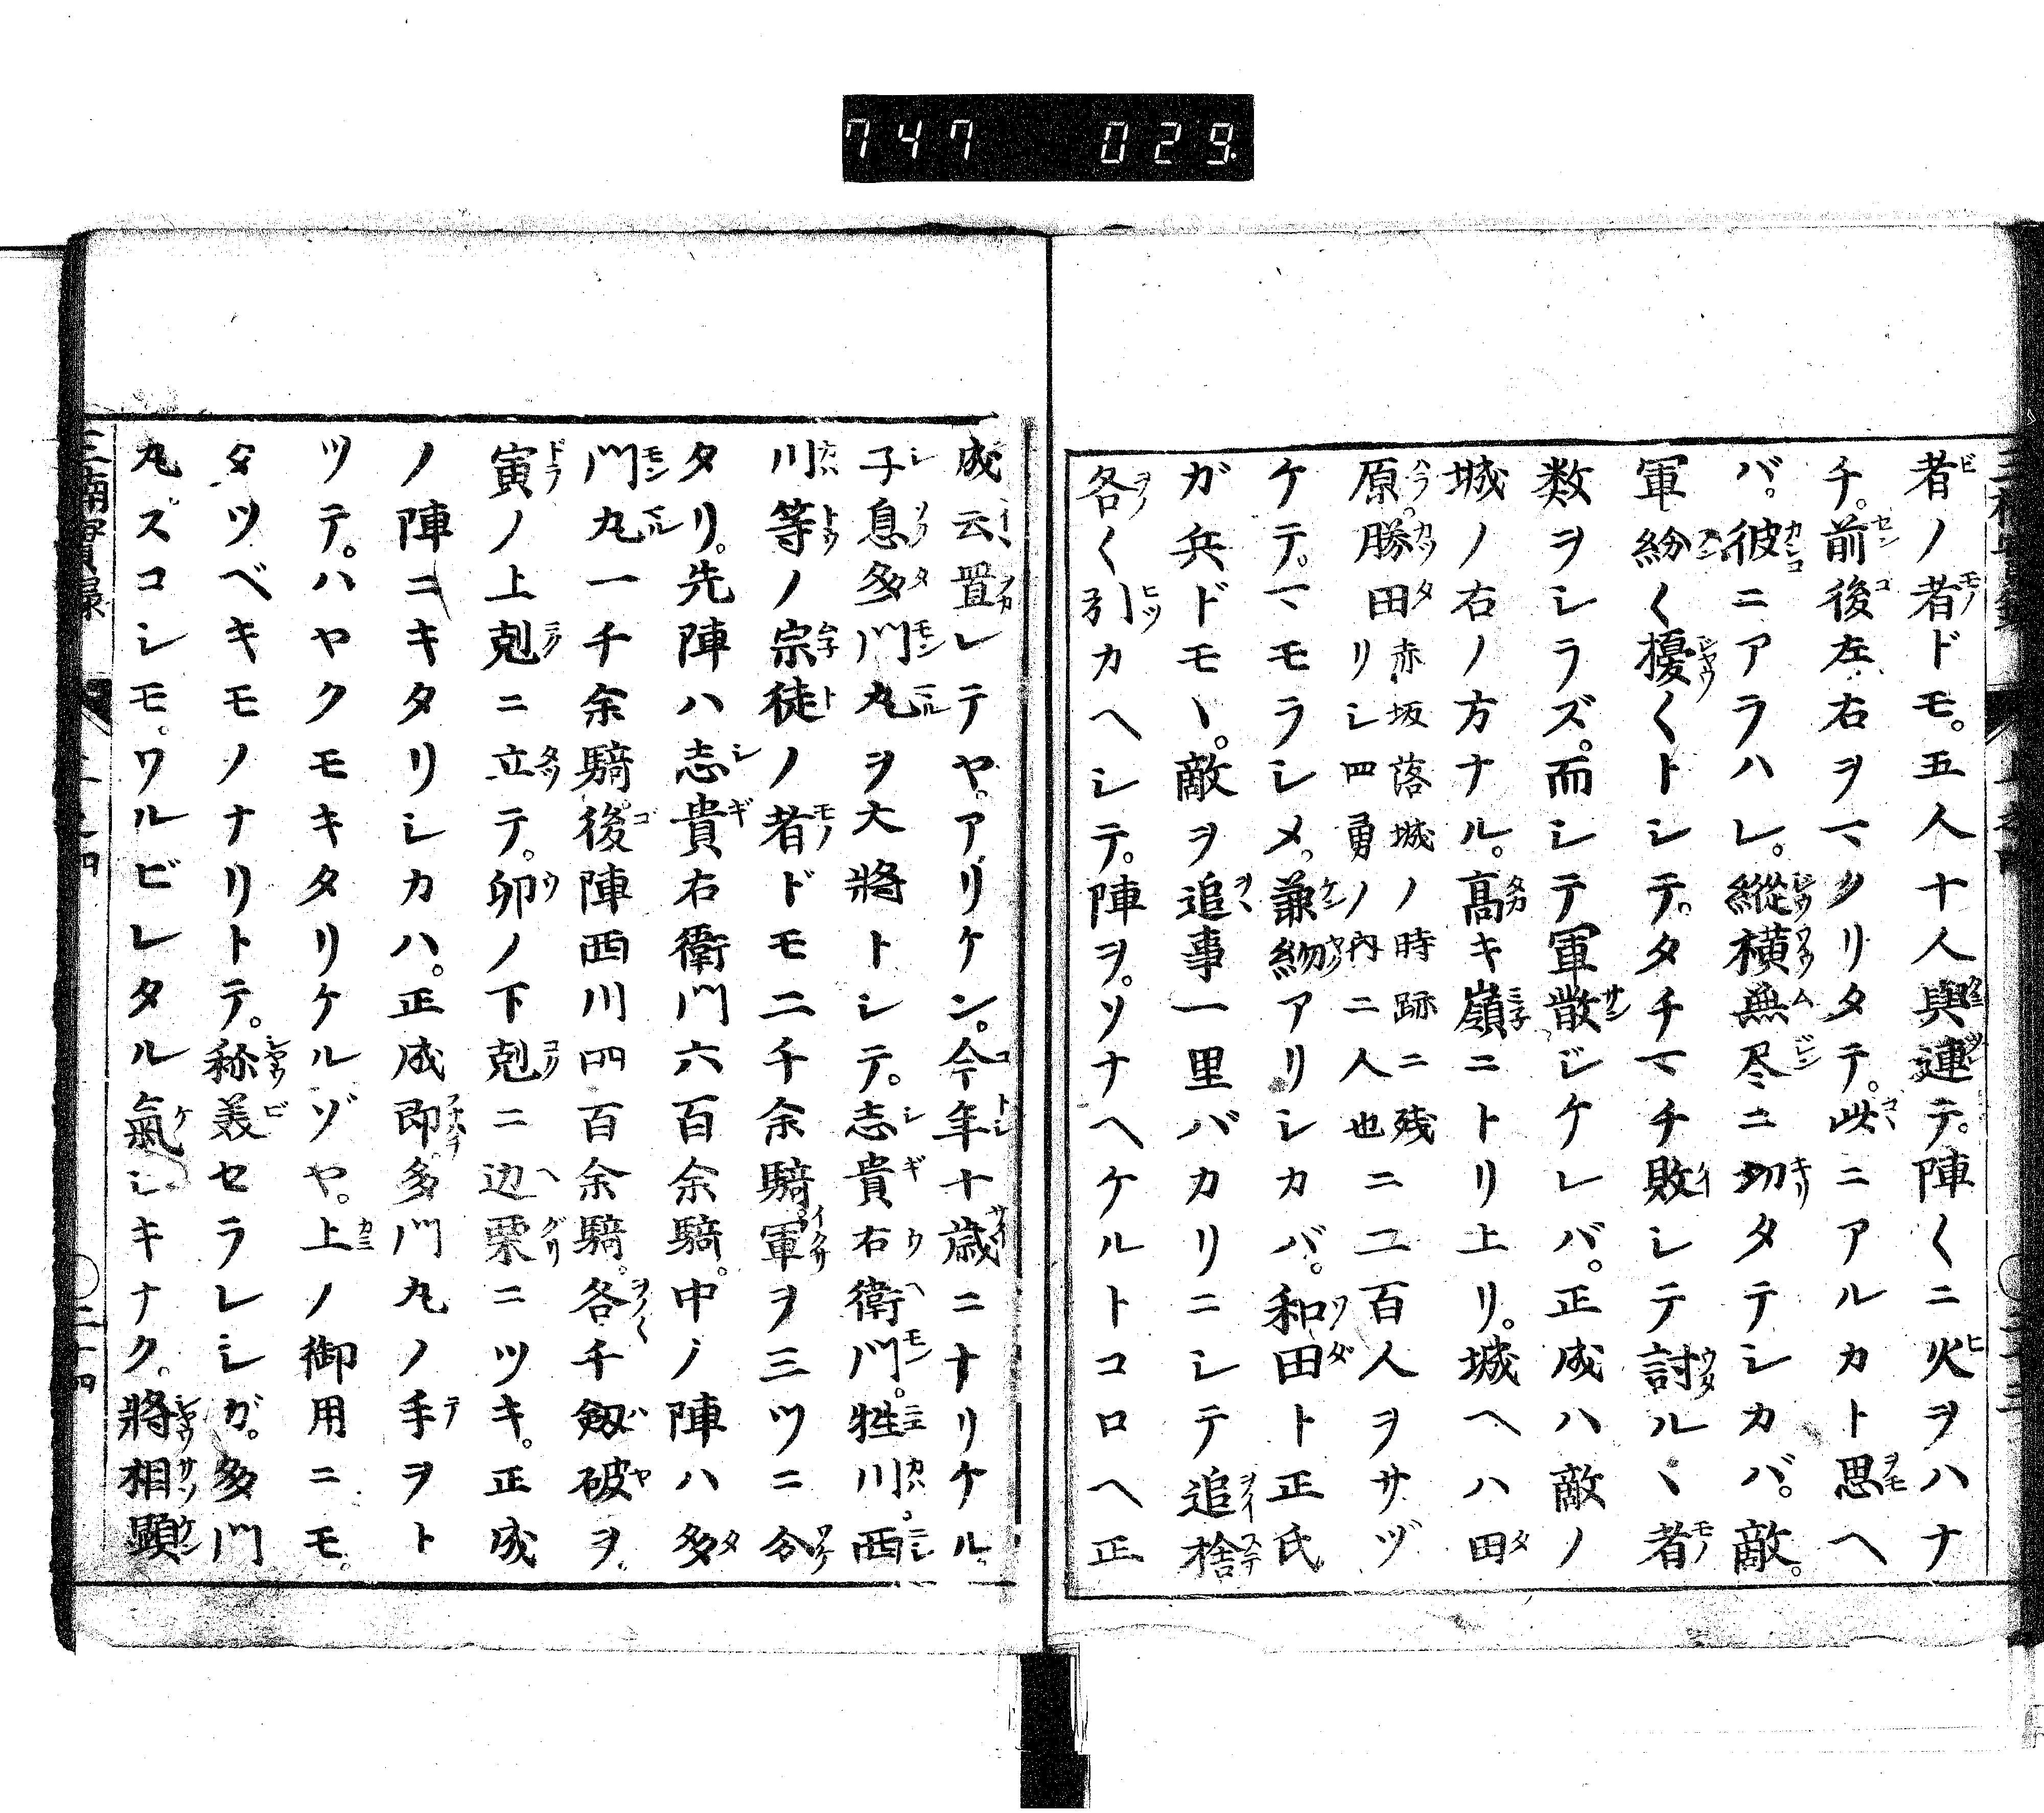 747 029.
者ノ者ドモ。五人十人與連テ。陣〱ニ火ヲハナ
チ。前後左右ヲマクリタテ。此ニアルカト思ヘ
バ。彼ニアラハレ。縱横無尽ニ切タテシカバ。敵。
軍紛〱擾〱トシテ。タチマチ敗シテ討ルヽ者
数ヲシラズ。而シテ軍散ジケレバ。正成ハ敵ノ
城ノ右ノ方ナル。高キ嶺ニトリ上リ。城ヘハ田
原。勝田赤坂落城ノ時跡ニ残リシ四勇ノ内ニ人也ニ二百人ヲサヅ
ケテ。マモラシメ。兼約アリシカバ。和田ト正氏
ガ兵ドモヽ。敵ヲ追事一里バカリニシテ追捨
各〱引カヘシテ。陣ヲ。ソナヘケルトコロヘ正
成云置レテヤ。アリケン。今年十歳ニナリケル。
子息多門丸ヲ大將トシテ。志貴右衛門。牲川。西
川等ノ宗徒ノ者ドモ二千余騎。軍ヲ三ツニ分
タリ。先陣ハ志貴右衛門六百余騎。中ノ陣ハ多
門丸一千余騎。後陣西川四百余騎。各千劔破ヲ。
寅ノ上剋ニ立テ。卯ノ下剋ニ辺栗ニツキ。正成
ノ陣ニキタリシカハ。正成即多門丸ノ手ヲト
ツテ。ハヤクモキタリケルゾヤ。上ノ御用ニモ。
タツベキモノナリトテ。称美セラレシガ。多門
丸。スコシモ。ワルビレタル氣シキナク。將相顕
三楠實録 二十四